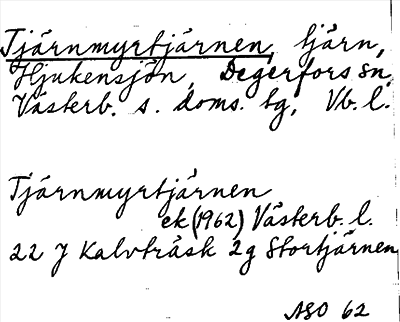 Tjärnmyrtjärnen, tjärn,
Hjukensjön, Degerfors sn,
Västerb. s. doms. tg, Vb. l.
Tjärnmyrtjärnen
ek (1962) Västerb. l.
22 J Kalvträsk 2g Stortjärnen
ASO 62